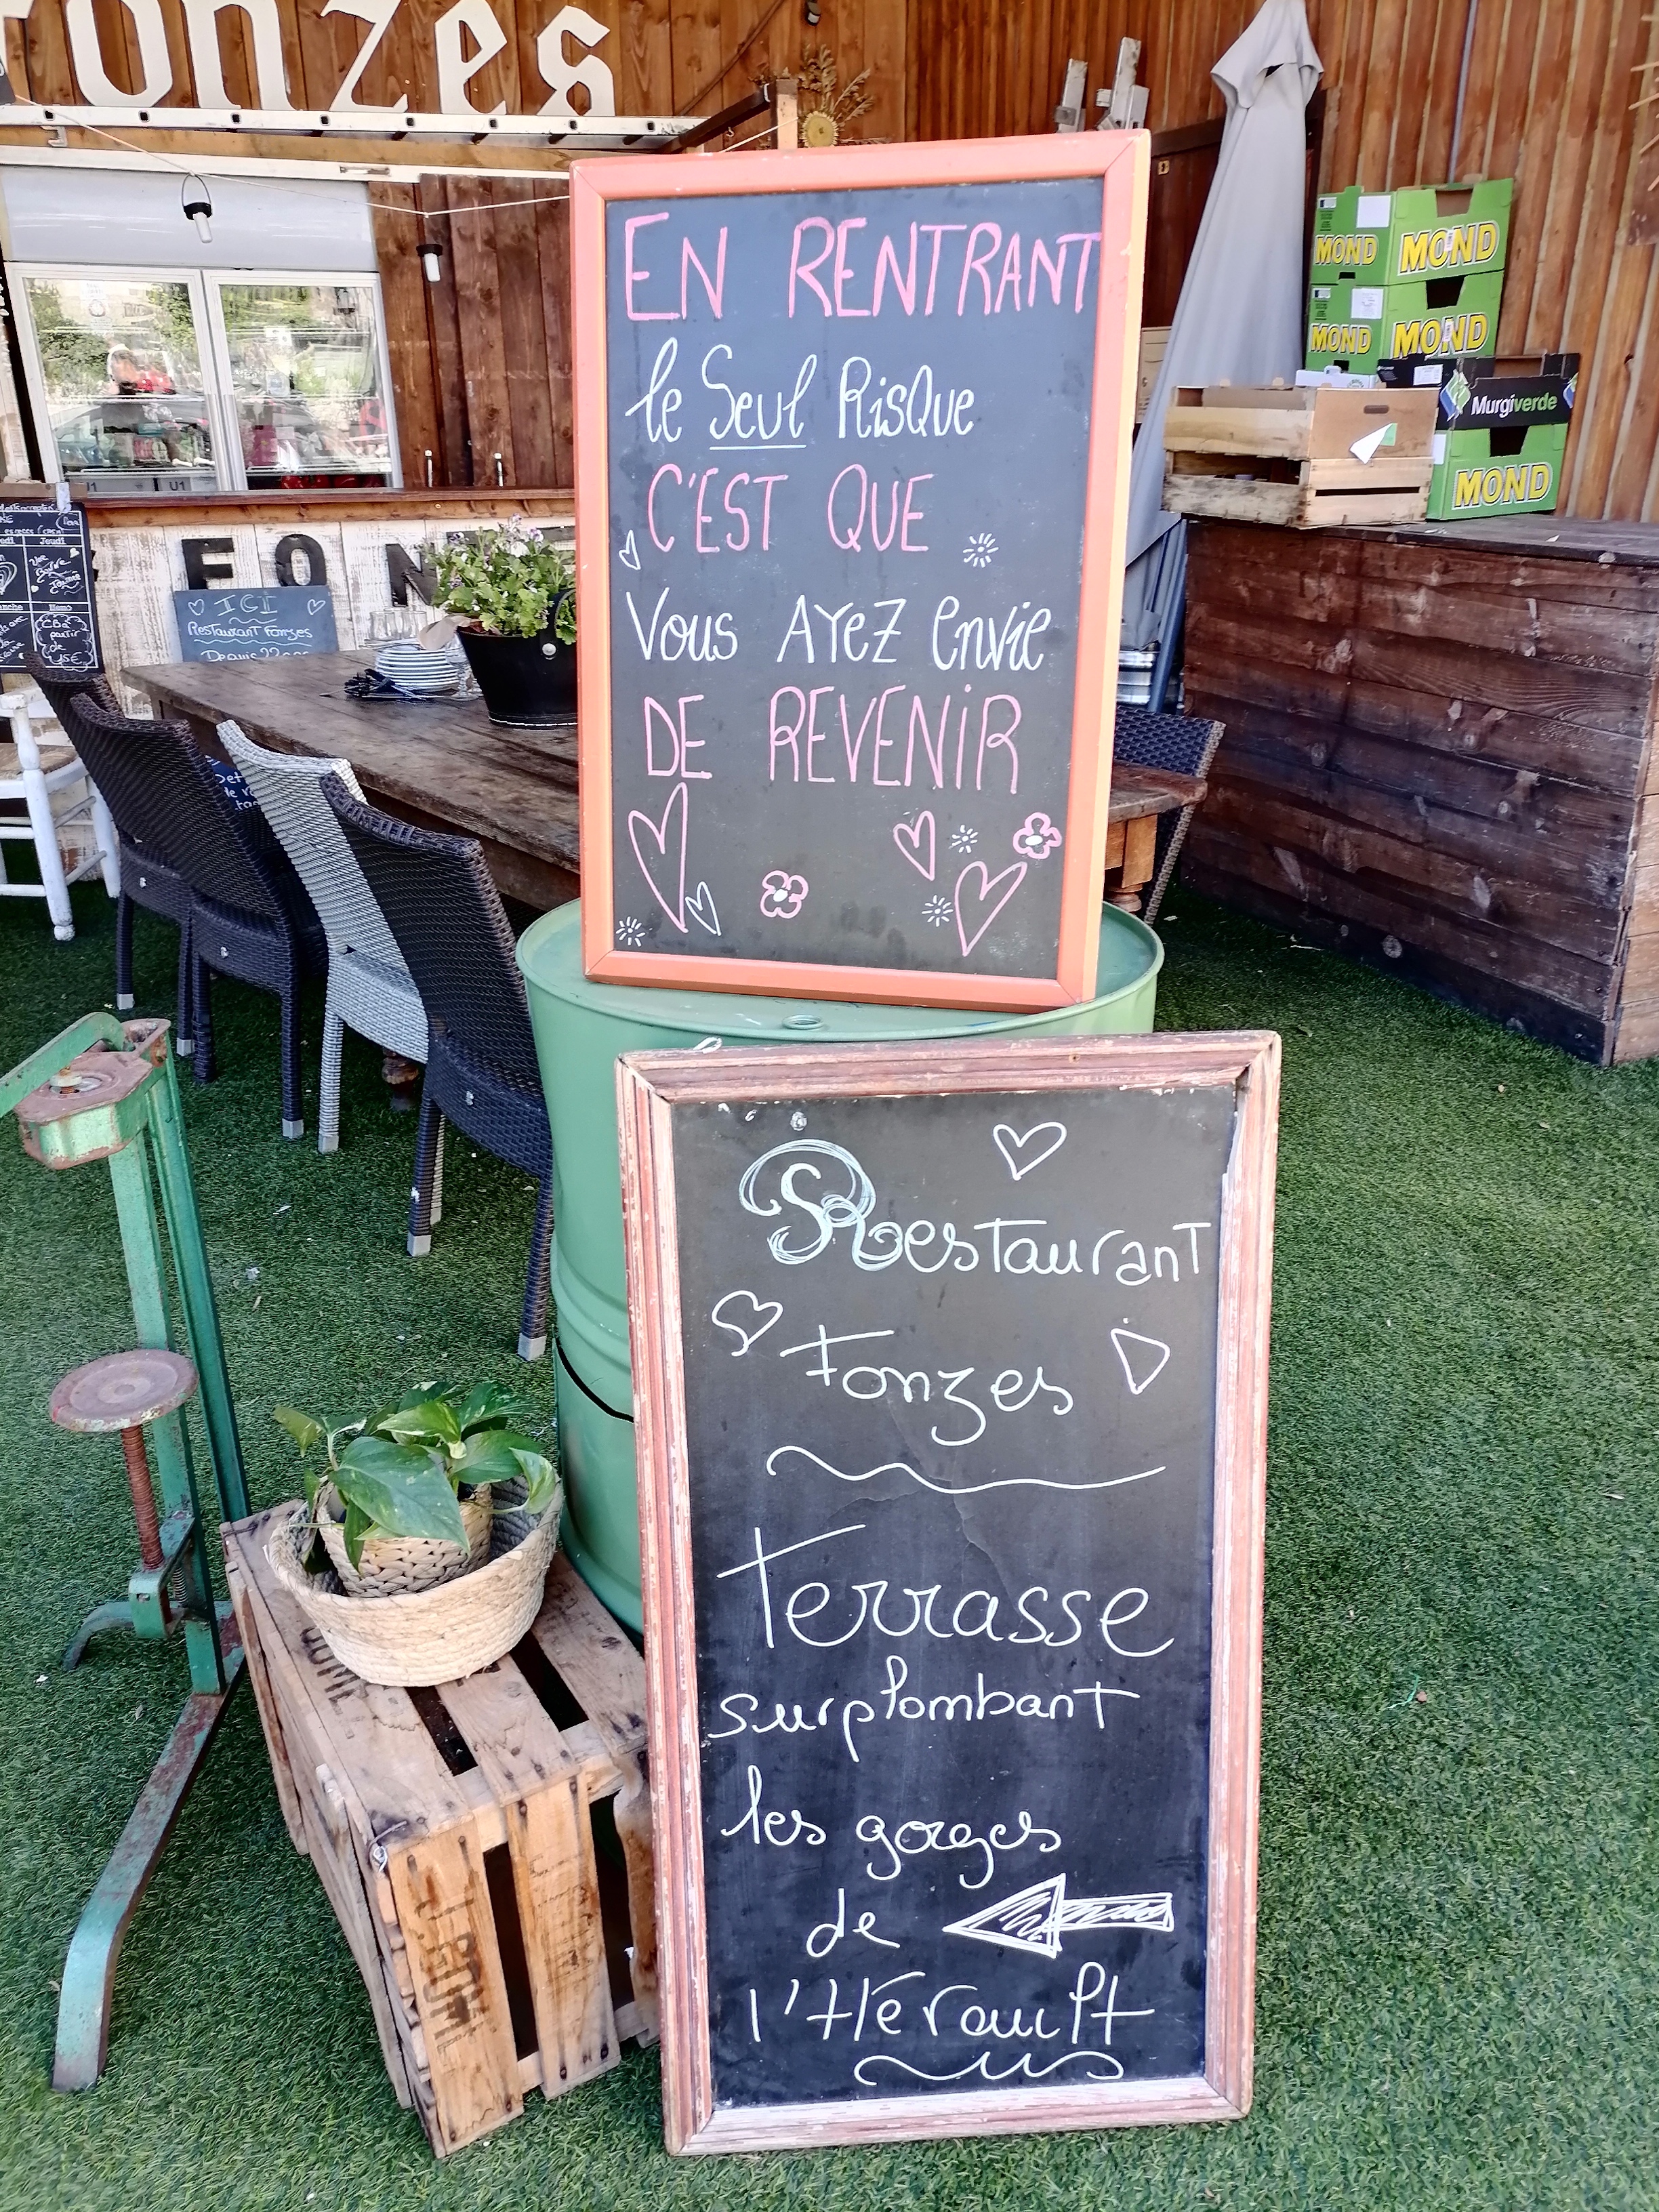 onzes
EN RENTRANT
le Seul Risque
C'EST QUE
Vous AYEZ envie
DE REVENIR
MOND MOND
MOND MOND
Murgiverde
MOND
U1 U1
F O N
ICI
Restaurant Fonzes
Depuis
Jeudi
partir
de
15€
Restaurant
Fonzes
Terrasse
surplombant
les gorges
de
l'Hérault